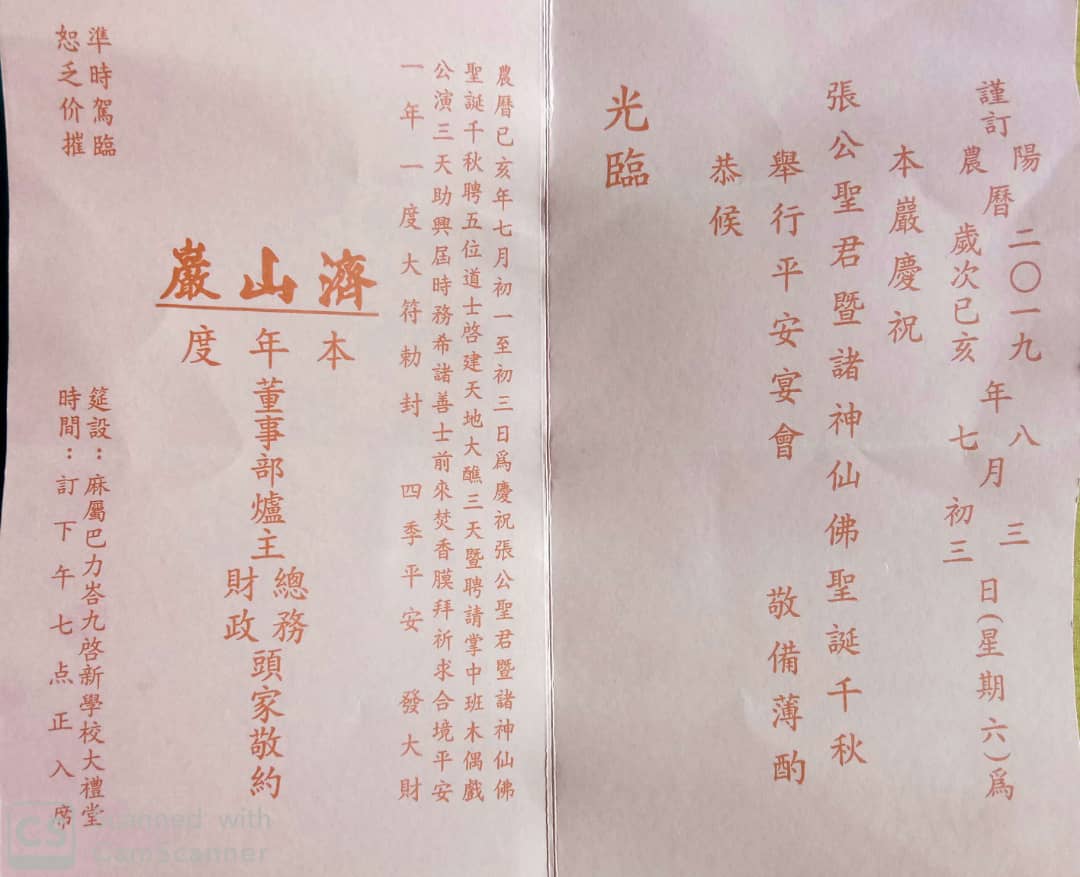 謹訂
陽
農
曆
二〇一九
歲次已亥
年
八
七
月
三
初三
日(星期六)為
本巖慶祝
張公聖君暨諸神仙佛聖誕千秋
舉行平安宴會 敬備薄酌
恭候
光臨
農曆已亥年七月初一至初三日為慶祝張公聖君暨諸神仙佛
聖誕千秋聘五位道士啓建天地大醮三天暨聘請掌中班木偶戲
公演三天助興屆時務希諸善士前來焚香膜拜祈求合境平安
一年一度大符勅封 四季平安 發大財
濟山巖
本年度
董事部爐主
總務
財政
頭家敬約
準時駕臨
恕乏价摧
筵設:麻屬巴力峇九啓新學校大禮堂
時間:訂下午七点正入席
CS Scanned with
CamScanner